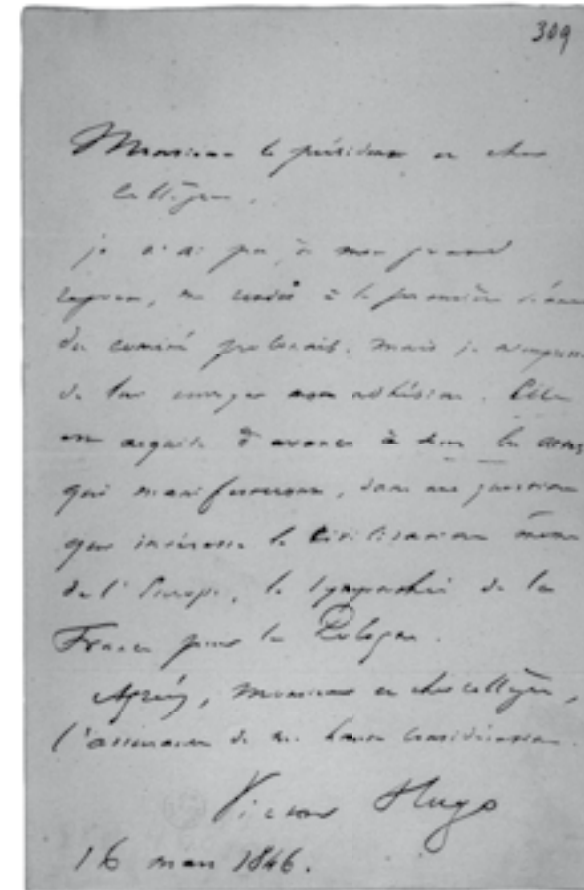 309
Monsieur le président et cher
collègue,
je n'ai pu, à mon grand
regret, me rendre à la première séance
du comité polonais. Mais je m'empresse
de lui envoyer mon adhésion. Elle
est acquise d'avance à tous les actes
qui manifesteront, dans une question
qui intéresse la civilisation même
de l'Europe, la sympathie de la
France pour la Pologne.
Agréez, Monsieur et cher collègue,
l'assurance de ma haute considération.
Victor Hugo
16 mars 1846.